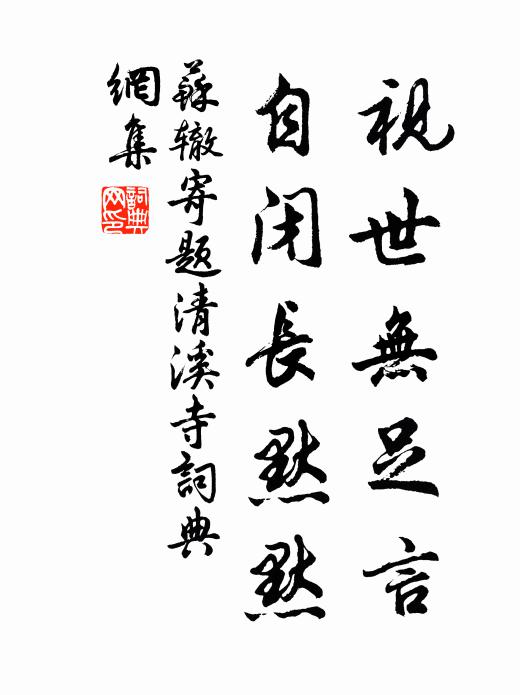 視世無足言
自闭長默默
蘇辙寄题清溪寺詞典
網集
詞典
网印